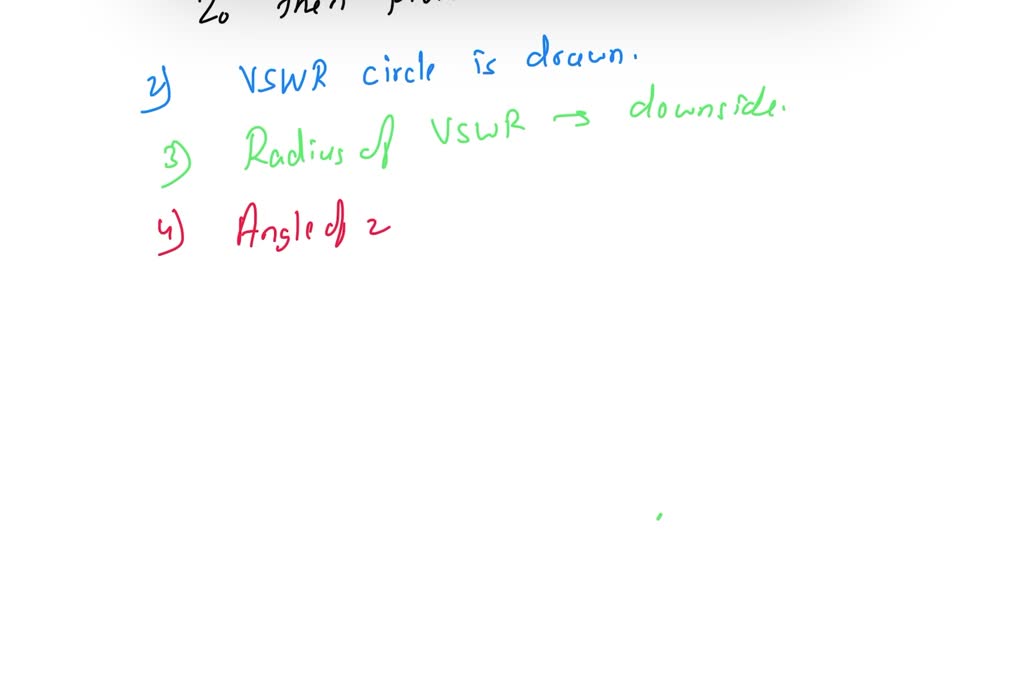 Zo then
2) VSWR circle is drawn.
3) Radius of VSWR → downside.
4) Angle of z